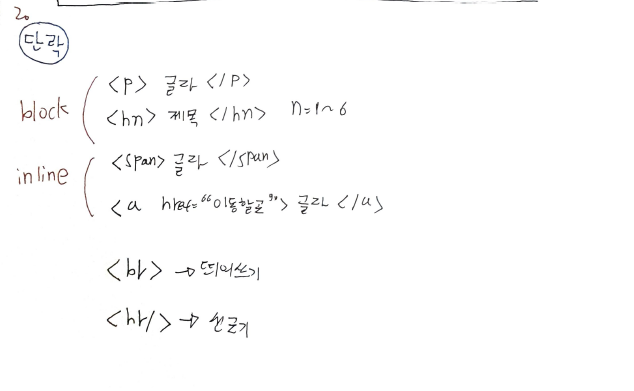 2.
단락
block
<p> 글자 </p>
<hn> 제목 </hn> n=1~6
inline
<span> 글자 </span>
<a href="이동할곳"> 글자 </a>
<br> → 띄어쓰기
<hr/> → 선긋기